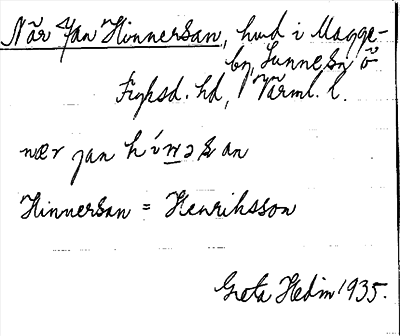 När Jan Hinnersan, hmd i Magge-
by, Sunne sn Ö
Fryksd. hd, Värml. l.
nær jan hínəsan
Hinnersan = Henriksson
Greta Hedin 1935.